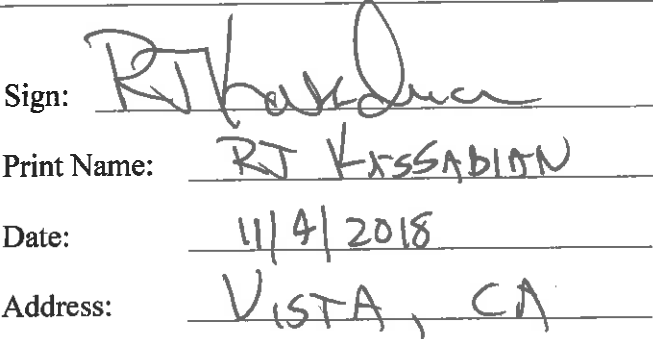 Sign: RJ Kassabian
Print Name: RJ KASSABIAN
Date: 11/4/2018
Address: VISTA, CA